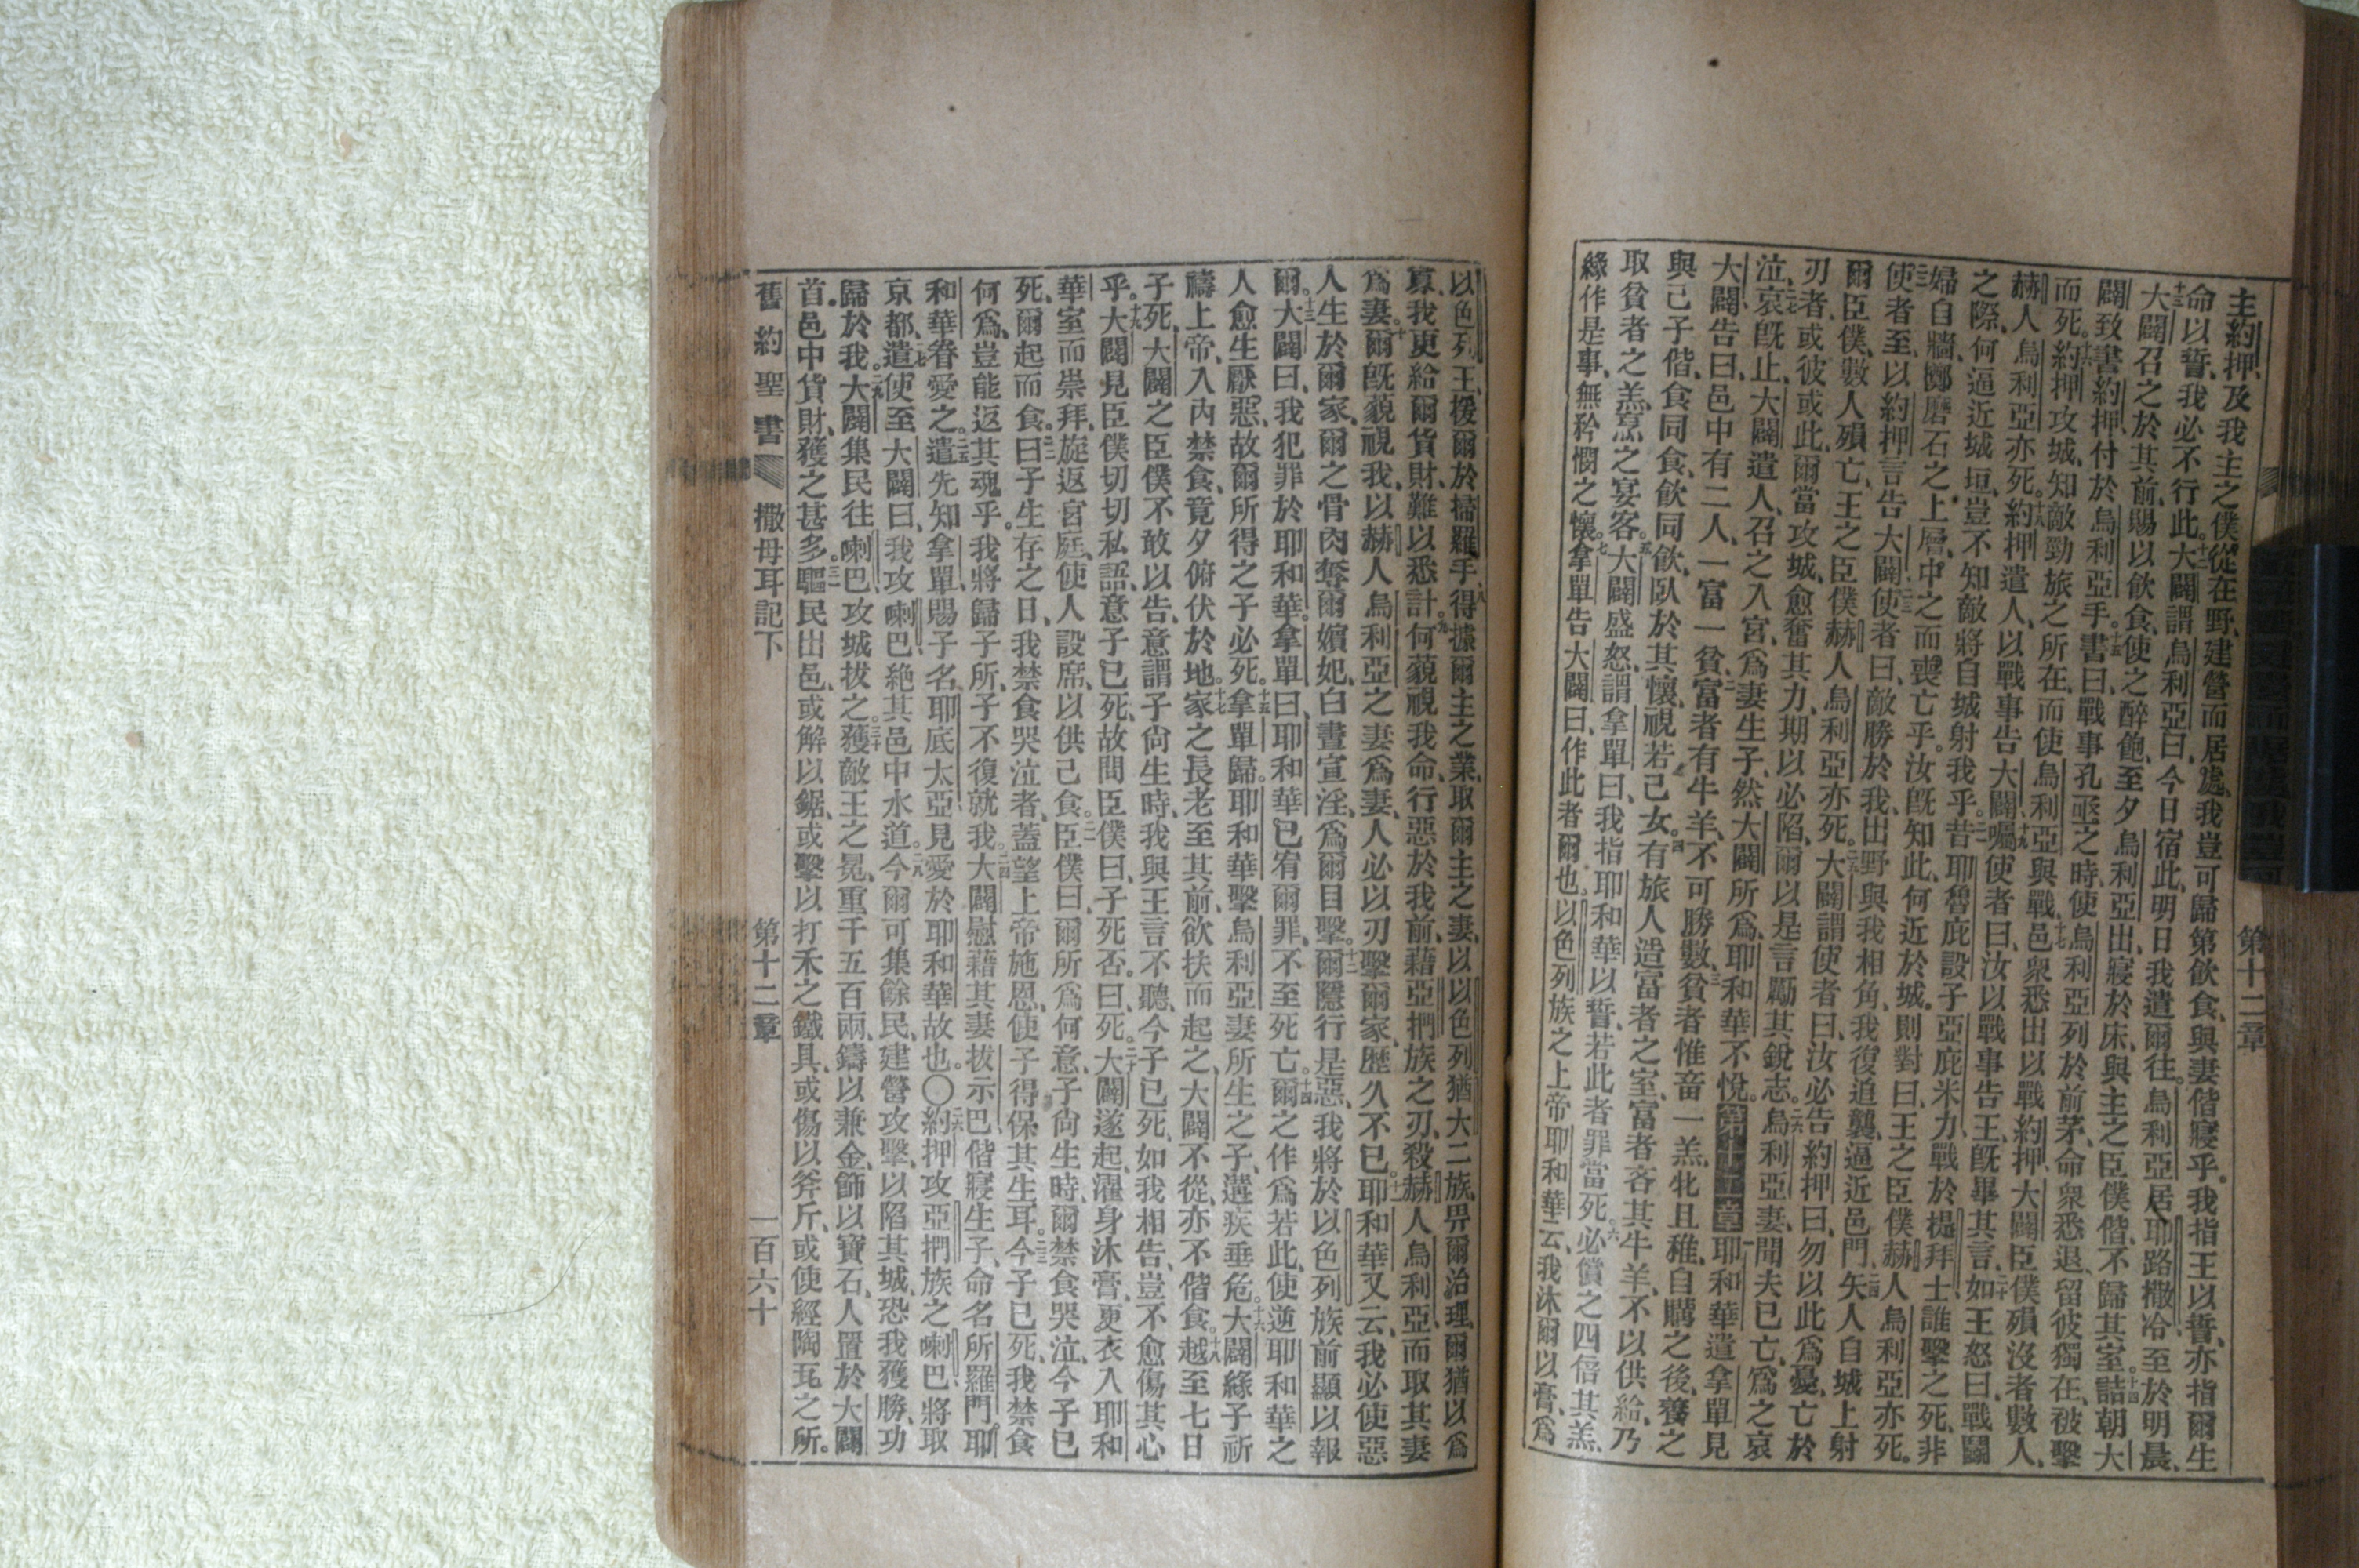 主約押、及我主之僕、從在野、建營而居處、我豈可歸第飲食、與妻偕寢乎。我指王以誓、亦指爾生
命以誓、我必不行此。十二大闢謂烏利亞曰、今日宿此、明日我遣爾往。烏利亞居耶路撒冷、至於明晨、
十三大闢召之於其前、賜以飲食、使之醉飽、至夕烏利亞出、寢於床、與主之臣僕偕、不歸其室。十四詰朝大
闢致書約押、付於烏利亞手。十五書曰、戰事孔亟之時、使烏利亞列於前茅、命衆悉退、留彼獨在、被擊
而死。十六約押攻城、知敵勁旅之所在、而使烏利亞與戰、十七邑衆悉出以戰約押、大闢臣僕殞沒者數人、
赫人烏利亞亦死。十八約押遣人、以戰事告大闢、十九囑使者曰、汝以戰事告王、旣畢其言、二十如王怒曰、戰鬭
之際、何逼近城垣、豈不知敵將自城射我乎。二一昔耶魯庇設子亞庇米力、戰於提拜士、誰擊之死、非
婦自牆擲磨石之上層、中之而喪亡乎。汝旣知此、何近於城、則對曰、王之臣僕赫人烏利亞亦死。
二二使者至、以約押言告大闢、二三使者曰、敵勝於我、出野與我相角、我復追襲、逼近邑門、二四矢人自城上射
爾臣僕、數人殞亡、王之臣僕赫人烏利亞亦死。二五大闢謂使者曰、汝必告約押曰、勿以此爲憂、亡於
刃者、或彼或此、爾當攻城、愈奮其力、期以必陷、爾以是言勵其銳志。二六烏利亞妻、聞夫已亡、爲之哀
泣、二七哀旣止、大闢遣人、召之入宮、爲妻生子、然大闢所爲、耶和華不悅。第十二章一耶和華遣拿單見
大闢告曰、邑中有二人、一富一貧、二富者有牛羊、不可勝數、三貧者惟畜一羔、牝且稚、自購之後、養之
與己子偕、食同食、飲同飲、臥於其懷、視若己女。四有旅人造富者之室、富者吝其牛羊、不以供給、乃
取貧者之羔、烹之宴客。五大闢盛怒、謂拿單曰、我指耶和華以誓、若此者罪當死。六必償之四倍其羔、
緣作是事、無矜憫之懷。七拿單告大闢曰、作此者爾也。以色列族之上帝耶和華云、我沐爾以膏、爲
第十二章
以色列王、援爾於掃羅手、八得據爾主之業、取爾主之妻、以以色列猶大二族、畀爾治理、爾猶以爲
寡、我更給爾貨財、難以悉計。九何藐視我命、行惡於我前、藉亞捫族之刃、殺赫人烏利亞、而取其妻
爲妻。十爾旣藐視我、以赫人烏利亞之妻爲妻、人必以刃擊爾家、歷久不已。十一耶和華又云、我必使惡
人生於爾家、爾之骨肉奪爾嬪妃、白晝宣淫、爲爾目擊。十二爾隱行是惡、我將於以色列族前顯以報
爾。十三大闢曰、我犯罪於耶和華。拿單曰、耶和華已宥爾罪、不至死亡。十四爾之作爲若此、使逆耶和華之
人愈生厭惡、故爾所得之子必死。十五拿單歸。耶和華擊烏利亞妻所生之子、遘疾垂危。十六大闢緣子祈
禱上帝、入內禁食、竟夕俯伏於地、十七家之長老至其前、欲扶而起之、大闢不從、亦不偕食。十八越至七日
子死、大闢之臣僕不敢以告、意謂子尚生時、我與王言不聽、今子已死、如我相告、豈不愈傷其心
乎。十九大闢見臣僕切切私語、意子已死、故問臣僕曰、子死否。曰、死。二十大闢遂起、濯身沐膏、更衣入耶和
華室而崇拜、旋返宮庭、使人設席、以供己食、二一臣僕曰、爾所爲何意、子尚生時、爾禁食哭泣、今子已
死、爾起而食。二二曰、子生存之日、我禁食哭泣者、蓋望上帝施恩、使子得保其生耳。二三今子已死、我禁食
何爲、豈能返其魂乎。我將歸子所、子不復就我。二四大闢慰藉其妻拔示巴、偕寢生子、命名所羅門、耶
和華眷愛之。二五遣先知拿單、賜子名耶底太亞、見愛於耶和華故也。〇二六約押攻亞捫族之喇巴、將取
京都、二七遣使至大闢曰、我攻喇巴、絕其邑中水道。二八今爾可集餘民、建營攻擊、以陷其城、恐我獲勝、功
歸於我。二九大闢集民往喇巴、攻城拔之。三十獲敵王之冕、重千五百兩、鑄以兼金、飾以寶石、人置於大闢
首。邑中貨財、獲之甚多。三一驅民出邑、或解以鋸、或擊以打禾之鐵具、或傷以斧斤、或使經陶瓦之所。
舊約聖書 撒母耳記下 第十二章 二百六十